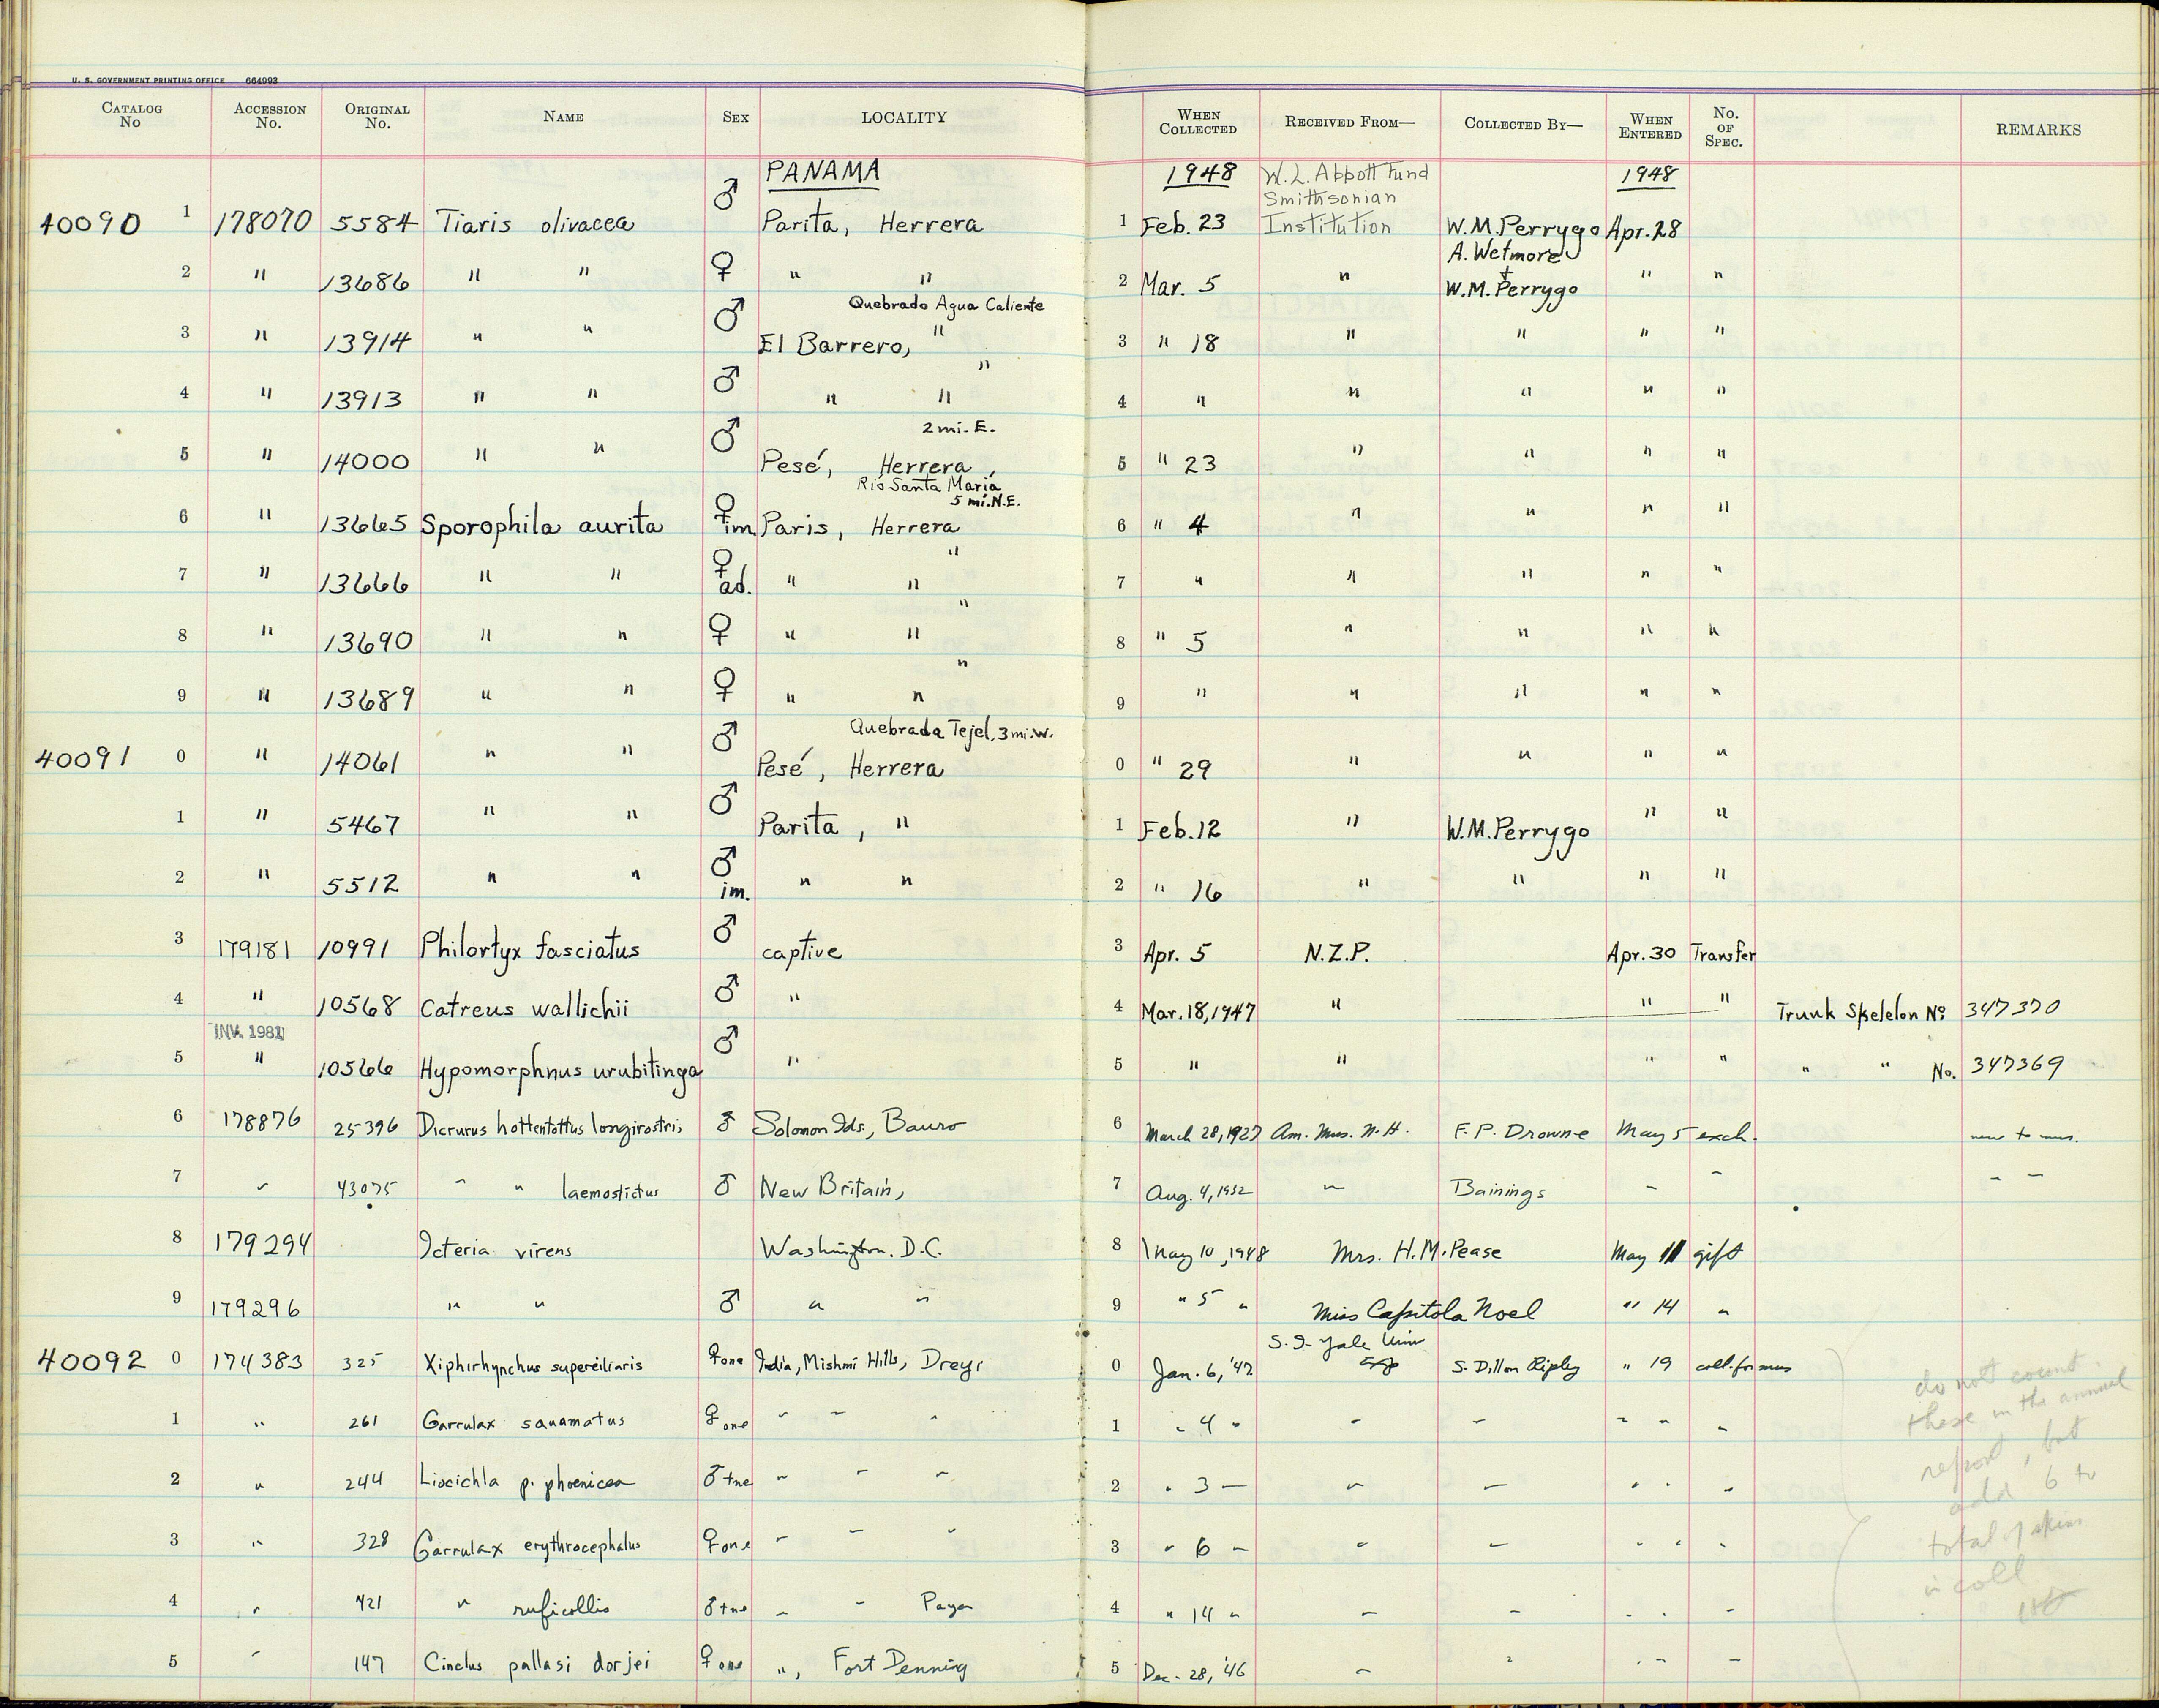 U. S. GOVERNMENT PRINTING OFFICE 664993
CATALOG No ACCESSION No. ORIGINAL No. NAME SEX LOCALITY WHEN COLLECTED RECEIVED FROM— COLLECTED BY— WHEN ENTERED No. OF SPEC. REMARKS
PANAMA 1948 W. L. Abbott Fund 1948
Smithsonian
40090 1 178070 5584 Tiaris olivacea ♂ Parita, Herrera 1 Feb. 23 Institution W.M. Perrygo Apr. 28
A. Wetmore
2 " 13686 " " ♀ " " 2 Mar. 5 " + W.M. Perrygo " "
Quebrado Agua Caliente
3 " 13914 " " ♂ El Barrero, " 3 " 18 " " " "
"
4 " 13913 " " ♂ " " 4 " " " " "
2 mi. E.
5 " 14000 " " ♂ Pesé, Herrera, 5 " 23 " " " "
Rio Santa Maria
5 mi. N.E.
6 " 13665 Sporophila aurita ♀ im. Paris, Herrera 6 " 4 " " " "
"
7 " 13666 " " ♀ ad. " " 7 " " " " "
"
8 " 13690 " " ♀ " " 8 " 5 " " " "
"
9 " 13689 " " ♀ " " 9 " " " " "
Quebrada Tejel, 3 mi. W.
40091 0 " 14061 " " ♂ Pesé, Herrera 0 " 29 " " " "
1 " 5467 " " ♂ Parita, " 1 Feb. 12 " W.M. Perrygo " "
2 " 5512 " " ♂ im. " " 2 " 16 " " " "
3 179181 10991 Philortyx fasciatus ♂ captive 3 Apr. 5 N.Z.P. Apr. 30 Transfer
4 " 10568 Catreus wallichii ♂ " 4 Mar. 18, 1947 " " " Trunk Skeleton No 347370
INV. 1981
5 " 10566 Hypomorphnus urubitinga ♂ " 5 " " " " " " No. 347369
6 178876 25396 Dicrurus hottentottus longirostris ♂ Solomon Ids., Bauro 6 March 28, 1927 Am. Mus. N. H. F. P. Drowne May 5 exch. new to mus.
7 " 43075 " " laemostictus ♂ New Britain, 7 Aug. 4, 1932 " Bainings " " " "
8 179294 Icteria virens Washington. D.C. 8 May 10, 1948 Mrs. H. M. Pease May 11 gift
9 179296 " " ♂ " " 9 " 5 " Miss Capitola Noel " 14 "
S. I. Yale Univ
40092 0 174383 325 Xiphirhynchus superciliaris ♀ one India, Mishmi Hills, Dreyi 0 Jan. 6, '47 Exp S. Dillon Ripley " 19 coll. for mus
1 " 261 Garrulax sanamatus ♀ one " " " 1 " 4 " " " " " "
2 " 244 Liocichla p. phoenicea ♂ tne " " " 2 " 3 " " " " " "
3 " 328 Garrulax erythrocephalus ♀ one " " " 3 " 6 " " " " " "
4 " 421 " ruficollis ♂ tne " " Paya 4 " 14 " " " " " "
5 " 147 Cinclus pallasi dorjei ♀ one ", Fort Denning 5 Dec. 28, '46 " " " " "
do not count
these in the annual
report, but
add 6 to
total of skins
in coll